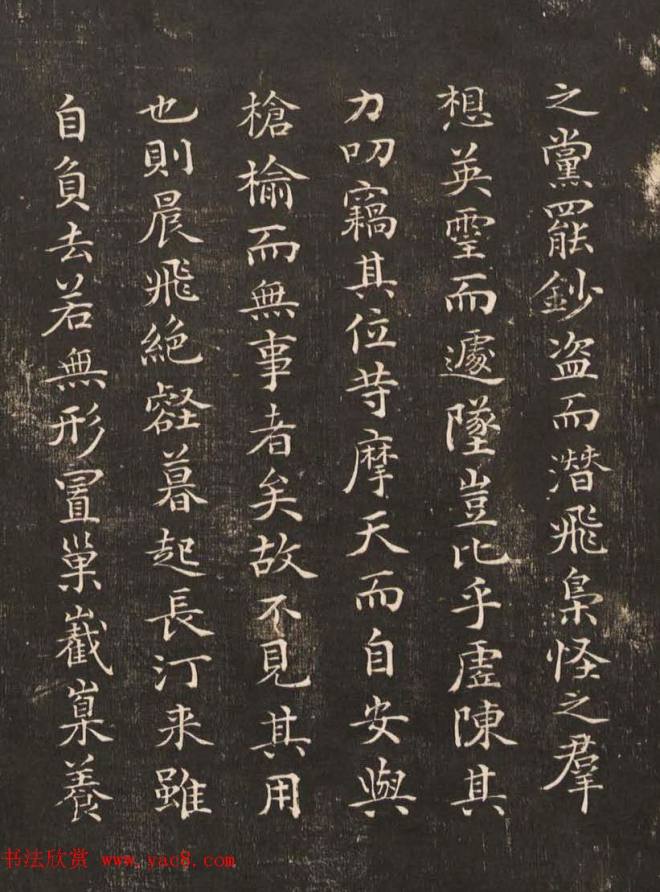 之黨罷鈔盗而潛飛梟怪之羣
想英靈而遽墜豈比乎虛陳其
力叨竊其位等摩天而自安與
槍榆而無事者矣故不見其用
也則晨飛絶壑暮起長汀来雖
自負去若無形置巢嶻嵲養
书法欣赏 www.yac8.com